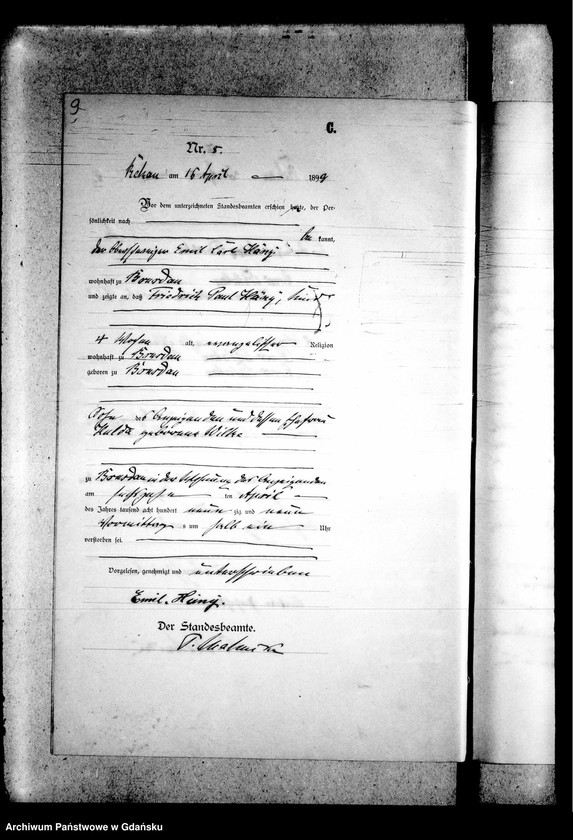 9
C.
Nr. 5.
am 16 April 1899
Vor dem unterzeichneten Standesbeamten erschien heute, der Per-
sönlichkeit nach
be kannt,
der Emil Carl
wohnhaft zu
und zeigte an, daß Friedrich Paul Kind
4 Wochen alt, evangelischer Religion
wohnhaft zu
geboren zu
Sohn des Anzeigenden und dessen Ehefrau
Hulda geborene Wilke
zu in der Wohnung des Anzeigenden
am sechszehn ten April
des Jahres tausend acht hundert neun zig und neun
Vormittag s um halb ein Uhr
verstorben sei.
Vorgelesen, genehmigt und unterschrieben
Emil
Der Standesbeamte.
Archiwum Państwowe w Gdańsku